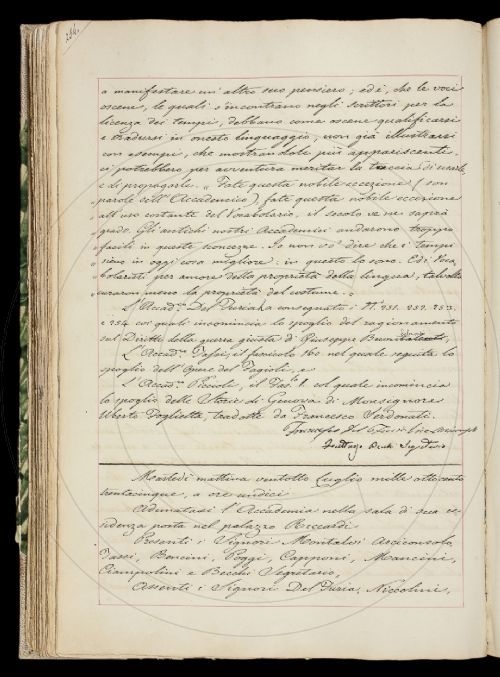 234.
a manifestare un' altro suo pensiero; ed è, che le voci
oscene, le quali s'incontrano negli scrittori per la
licenza dei tempi, debbano come oscene qualificarsi
e tradursi in onesto linguaggio; non già illustrarsi
con esempi, che mostrandole più appariscenti,
ci potrebbero per avventura meritar la taccia di usarle,
e di propagarle. „ Fate questa nobile eccezione (son
„ parole dell' Accademico) fate questa nobile eccezione
„ all' uso costante del Vocabolario, il secolo ve ne saprà
„ grado. Gli antichi nostri Accademici andarono troppo
„ facili in queste sconcezze. Io non vo' dire che i tempi
„ sieno in oggi cosa migliore: in questo lo sono. Ed i Voca-
„ bolaristi per amore della proprietà della lingua, talvolta
„ curaron meno la proprietà del costume. „
L'Accad.co Del Furia ha consegnato i N.i 251. 252. 253.
e 254 coi quali incomincia lo spoglio del ragionamento
sul Diritto della guerra giusta di Giuseppe
L'Accad.co Tassi, il fascicolo 160. nel quale seguita lo
spoglio dell' Opere del Fagioli, e
L'Accad.co Piccioli, il Fas.lo 1. col quale incomincia
lo spoglio delle Storie di Genova di Monsignore
Uberto Foglietta, tradotte da Francesco Serdonati.
Segretario
Martedì mattina ventotto Luglio mille ottocento
trentacinque, a ore undici
Adunatasi l'Accademia nella sala di sua re-
sidenza posta nel palazzo Riccardi
Presenti i Signori Montalvi Arciconsolo,
Tassi, Bencini, Poggi, Capponi, Mancini,
Ciampolini e Becchi Segretario,
Assenti i Signori Del Furia, Niccolini,